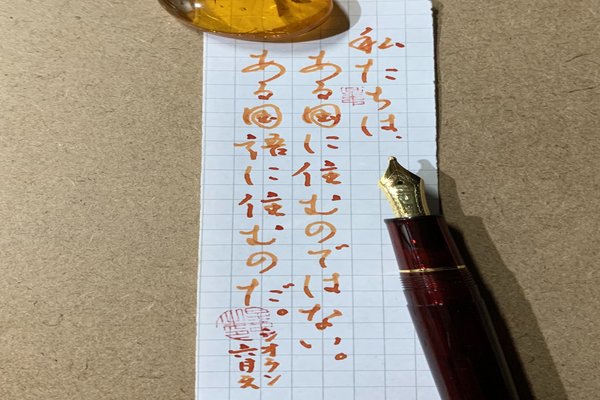 私たちは、
ある国に住むのではない。
ある国語に住むのだ。
シオラン
六日文